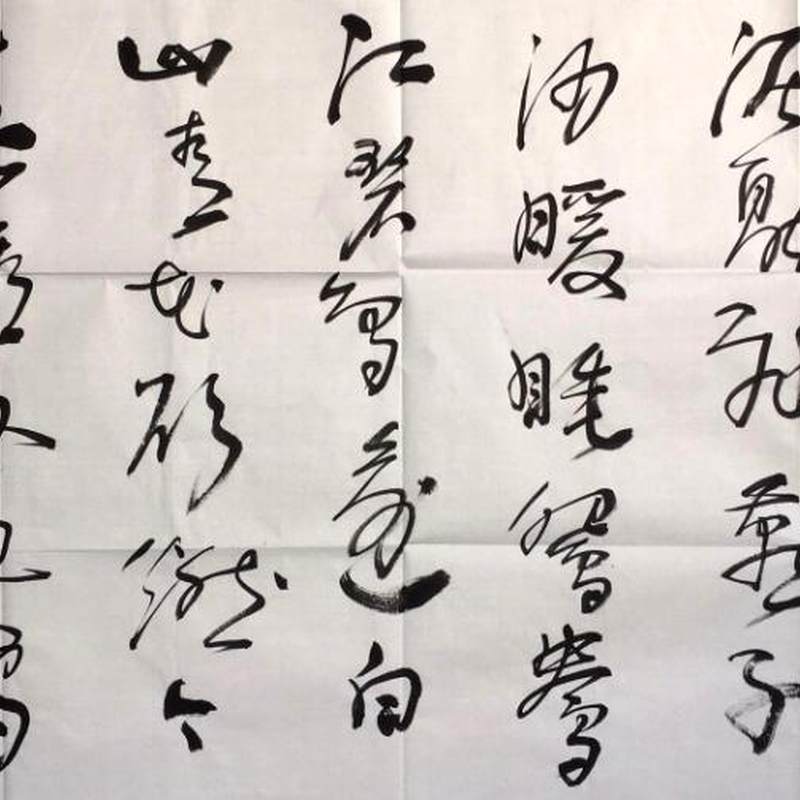 泥融飛燕子
沙暖睡鴛鴦
江碧鳥逾白
山青花欲燃今